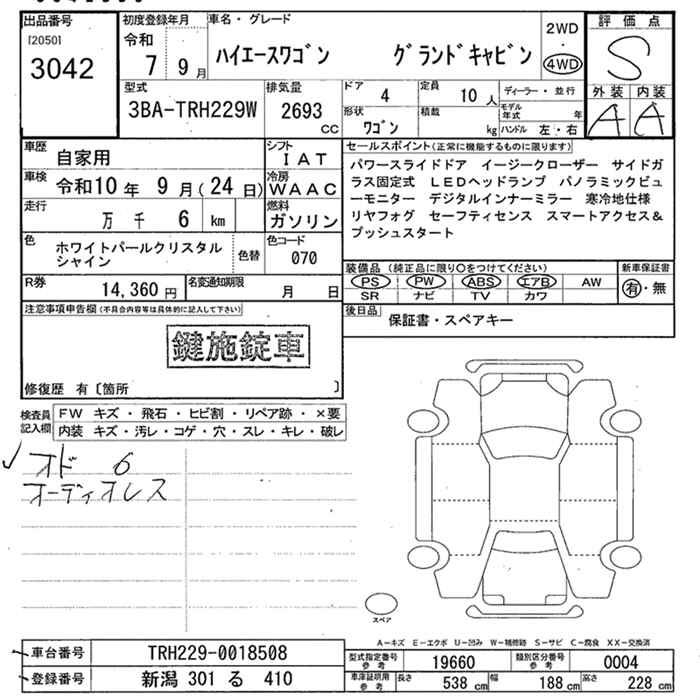 出品番号
[2050]
3042
初度登録年月
令和
7 9月
車名・グレード
ハイエースワゴン グランドキャビン
2WD
・
4WD
評価点
S
外装 内装
A A
型式
3BA-TRH229W
排気量
2693
cc
ドア
4
定員
10人
形状
ワゴン
積載
kg
ディーラー・並行
モデル年式 年
ハンドル 左・右
車歴
自家用
シフト
IAT
車検
令和10年 9月(24日)
冷房
WAAC
走行
万 千 6 km
燃料
ガソリン
色
ホワイトパールクリスタル
シャイン
色替
色コード
070
R券
14,360円
名変通知期限
月 日
セールスポイント(正常に機能するものに限ります)
パワースライドドア イージークローザー サイドガ
ラス固定式 LEDヘッドランプ パノラミックビュ
ーモニター デジタルインナーミラー 寒冷地仕様
リヤフォグ セーフティセンス スマートアクセス&
プッシュスタート
装備品(純正品に限り○をつけてください)
PS PW ABS エアB AW
SR ナビ TV カワ
新車保証書
有・無
後日品
保証書・スペアキー
注意事項申告欄(不具合内容等は具体的に記入して下さい)
鍵施錠車
修復歴 有〔箇所 〕
検査員
記入欄
FW キズ・飛石・ヒビ割・リペア跡・×要
内装 キズ・汚レ・コゲ・穴・スレ・キレ・破レ
オド 6
オーディオレス
スペア
A―キズ E―エクボ U―凹み W―補修跡 S―サビ C―腐食 XX―交換済
車台番号
TRH229-0018508
登録番号
新潟 301 る 410
型式指定番号
参考
19660
類別区分番号
参考
0004
車庫証明用
参考
長さ 538cm
幅 188cm
高さ 228cm